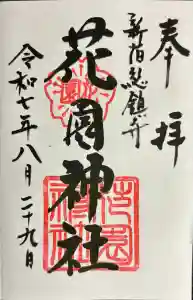 奉拝
新宿総鎮守
花園神社
令和七年八月二十九日
花園神社